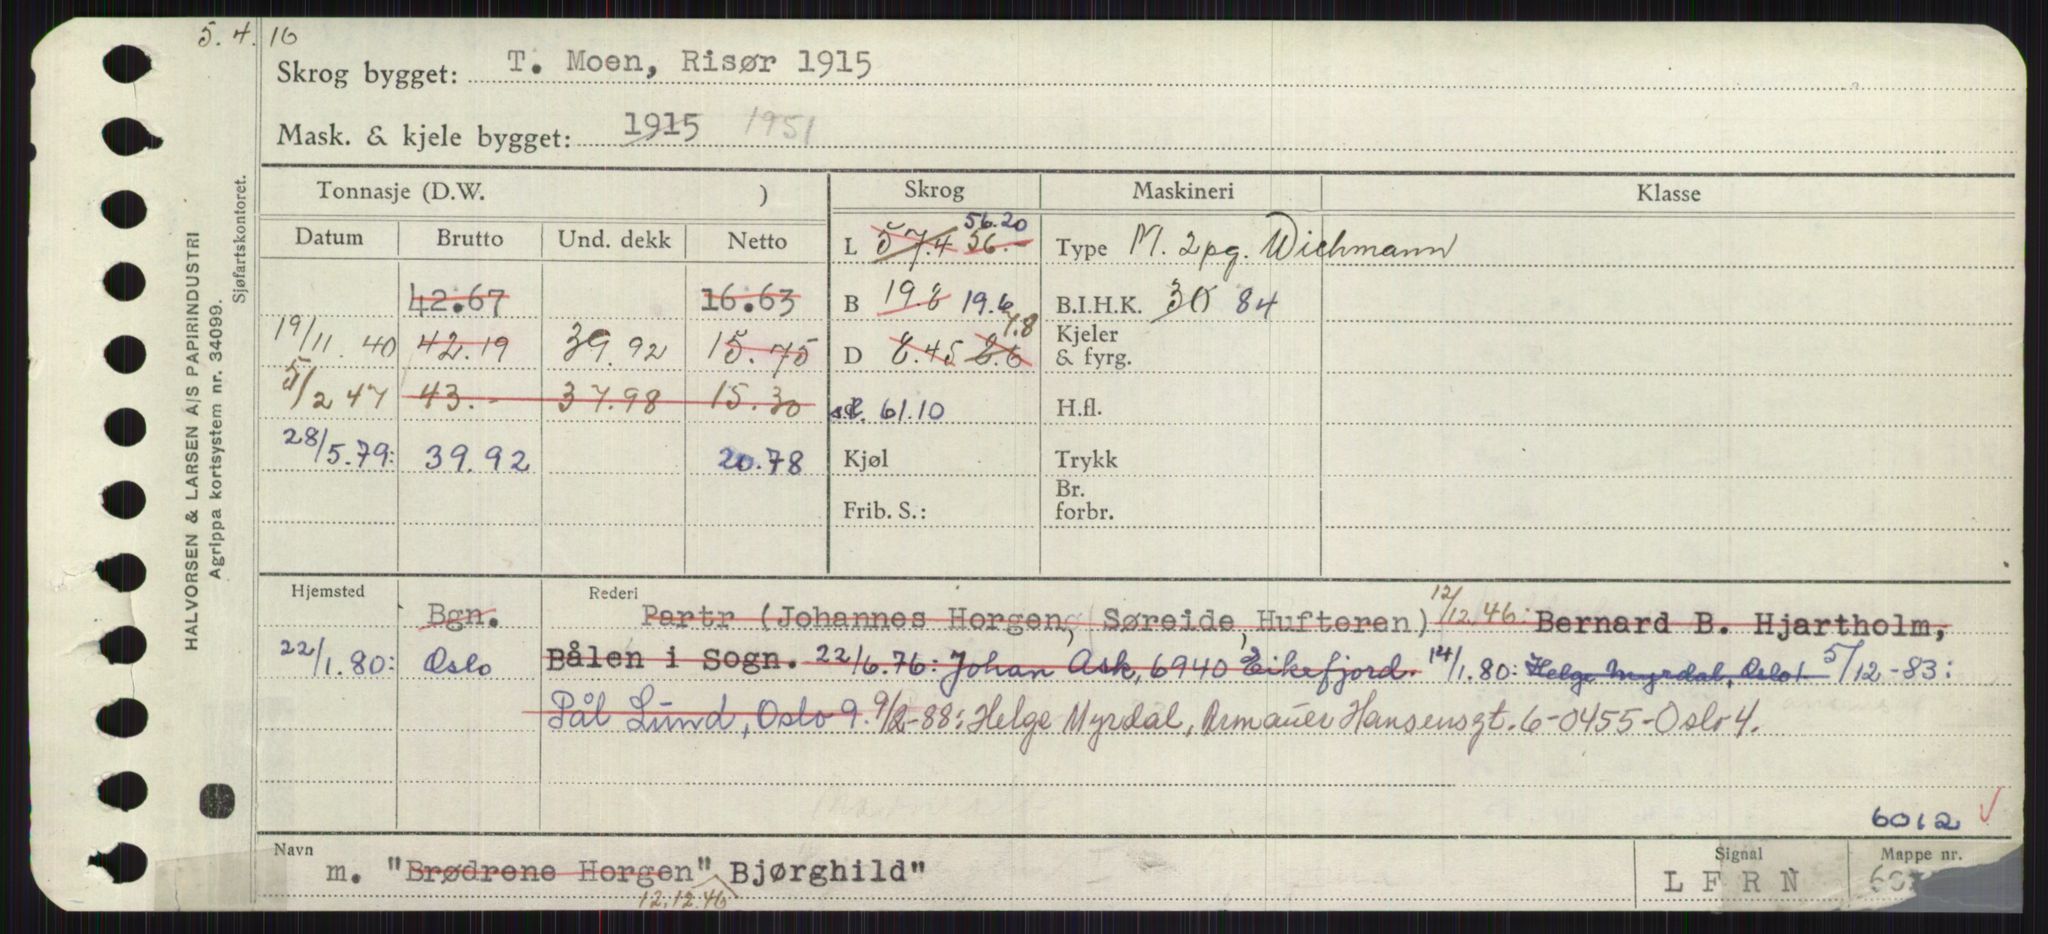 5.4.16
Skrog bygget: T. Moen, Risør 1915
Mask. & kjele bygget: 1915 1951
HALVORSEN & LARSEN A/S PAPIRINDUSTRI
Agrippa kortsystem nr. 34099.
Sjøfartskontoret.
Tonnasje (D.W. ) Skrog Maskineri Klasse
Datum Brutto Und. dekk Netto
56.20
L 57.4 56.- Type M. 2pg. Wichmann
42.67 16.63 B 19.8 19.6 B.I.H.K. 30 84
7.8
19/11.40 42.19 39.92 15.75 D 8.45 8.6 Kjeler & fyrg.
5/2 47 43.- 37.98 15.30 61.10 H.fl.
28/5.79: 39.92 20.78 Kjøl Trykk
Frib. S.: Br. forbr.
Hjemsted Rederi
Bgn. Partr (Johannes Horgen, Søreide, Hufteren) 12/12.46: Bernard B. Hjartholm,
22/1.80: Oslo Bålen i Sogn. 22/6.76: Johan Ask, 6940 Eikefjord. 14/1.80: Helge Myrdal, Oslo 1. 5/12-83:
Pål Lund, Oslo 9. 9/2-88: Helge Myrdal, Armauer Hansensgt. 6-0455-Oslo 4.
6012
Navn Signal Mappe nr.
m. "Brødrene Horgen" Bjørghild" L F R N
12.12.46